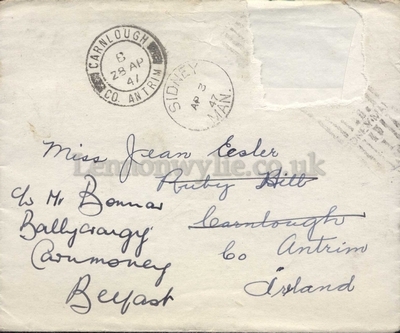 CARNLOUGH
B
28 AP
47
CO. ANTRIM
SIDNEY
AP 3
47
MAN.
Lennonwylie.co.uk
Miss Jean Esler
Ruby Hill
Carnlough
Co Antrim
Ireland
c/o Mr Bonnar
Ballycraigy
Carnmoney
Belfast